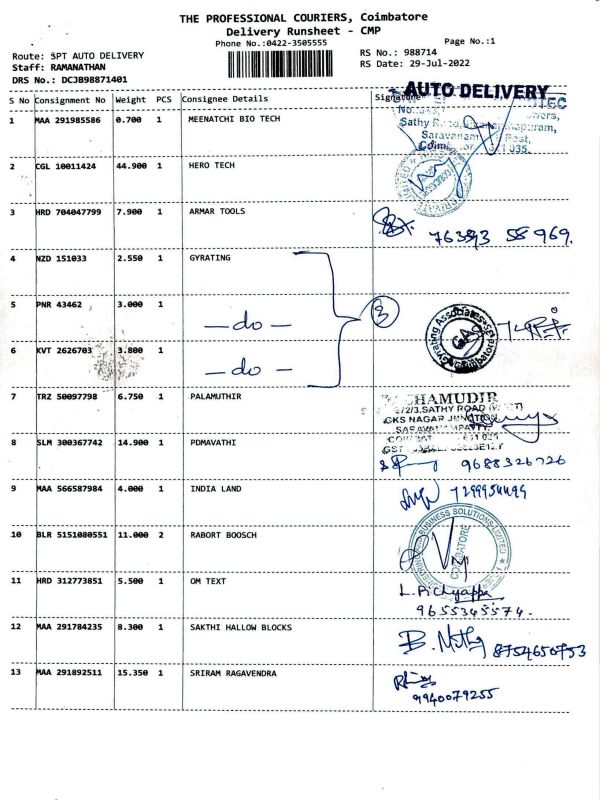 THE PROFESSIONAL COURIERS, Coimbatore
Delivery Runsheet - CMP
Phone No.:0422-3505555
Page No.:1
Route: SPT AUTO DELIVERY
RS No.: 988714
Staff: RAMANATHAN
RS Date: 29-Jul-2022
DRS No.: DCJB98871401
S No Consignment No Weight PCS Consignee Details Signature
AUTO DELIVERY
1 MAA 291985586 0.700 1 MEENATCHI BIO TECH
Sathy
Saravanam Post,
2 CGL 10011424 44.900 1 HERO TECH
3 HRD 704047799 7.900 1 ARMAR TOOLS
76393 58969.
4 NZD 151033 2.550 1 GYRATING
5 PNR 43462 3.000 1 — do — 3
Gyrating Associates
Coimbatore
6 KVT 2626703 3.800 1 — do —
7 TRZ 50097798 6.750 1 PALAMUTHIR
CHAMUDIR
2/2/3,SATHY ROAD
GKS NAGAR JUNCTION
8 SLM 300367742 14.900 1 PDMAVATHI
9688326726
9 MAA 566587984 4.000 1 INDIA LAND
10 BLR 5151080551 11.000 2 RABORT BOOSCH
BUSINESS SOLUTIONS LIMITED
COIMBATORE
11 HRD 312773851 5.500 1 OM TEXT
L. Pichyappa
9655345574.
12 MAA 291784235 8.300 1 SAKTHI HALLOW BLOCKS
8754650753
13 MAA 291892511 15.350 1 SRIRAM RAGAVENDRA
9940079255